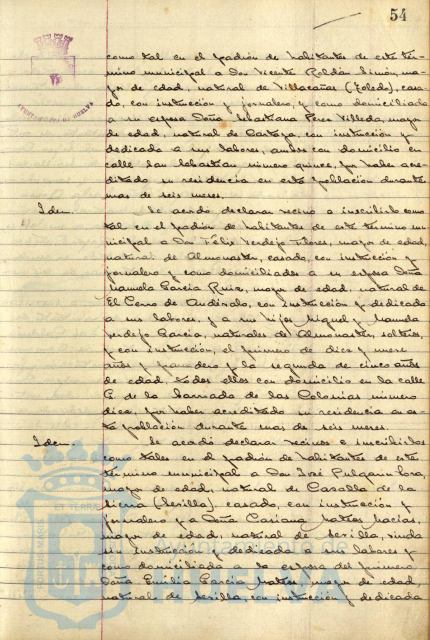 54
como tal en el padrón de habitantes de este tér-
mino municipal a Don Vicente Roldán Simón, ma-
yor de edad, natural de Villacañas (Toledo), casa-
do, con instrucción y jornalero, y como domiciliado
a su esposa Doña Sebastiana Pérez Villeda, mayor
de edad, natural de Cartaya, con instrucción y
dedicada a sus labores, ambos con domicilio en
calle San Sebastián número quince, por haber acre-
ditado su residencia en esta población durante
mas de seis meses.
Idem. Se acordó declarar vecino e inscribirlo como
tal en el padrón de habitantes de este término mu-
nicipal a Don Félix Verdejo Flores, mayor de edad,
natural de Almonaster, casado, con instrucción y
jornalero y como domiciliados a su esposa Doña
Manuela García Ruiz, mayor de edad, natural de
El Cerro de Andévalo, con instrucción y dedicada
a sus labores, y a sus hijos Miguel y Manuela
Verdejo García, naturales de Almonaster, solteros,
y con instrucción, el primero de diez y nueve
años y panadero y la segunda de cinco años
de edad, todos ellos con domicilio en la calle
C. de la barriada de las Colonias número
diez, por haber acreditado su residencia en es-
ta población durante mas de seis meses.
Idem. Se acordó declarar vecinos e inscribirlos
como tales en el padrón de habitantes de este
término municipal a Don José Pulgarín Lora,
mayor de edad, natural de Cazalla de la
Sierra (Sevilla), casado, con instrucción y
jornalero y a Doña Casiana Mateos Macías,
mayor de edad, natural de Sevilla, viuda
sin instrucción y dedicada a sus labores y
como domiciliada a la esposa del primero
Doña Emilia García Mateos, mayor de edad,
natural de Sevilla, con instrucción y dedicada